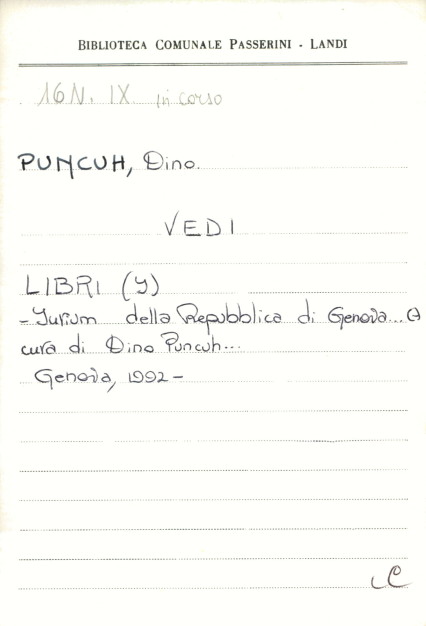 BIBLIOTECA COMUNALE PASSERINI - LANDI
16N. IX in corso
PUNCUH, Dino.
VEDI
LIBRI (I)
- Iurium della Repubblica di Genova... A
cura di Dino Puncuh...
Genova, 1992 -